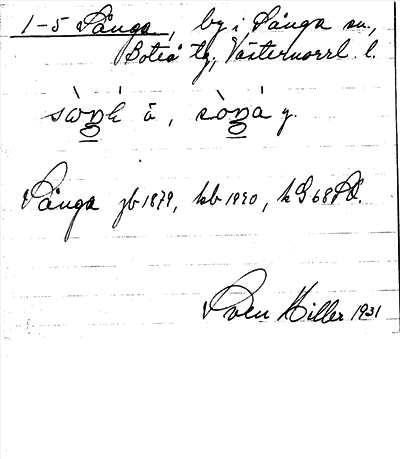 1-5 Sånga, by i Sånga sn.,
Boteå tg., Västernorrl. l.
å, y.
Sånga jb 1879, kb 1920, k
Sven Hiller 1931